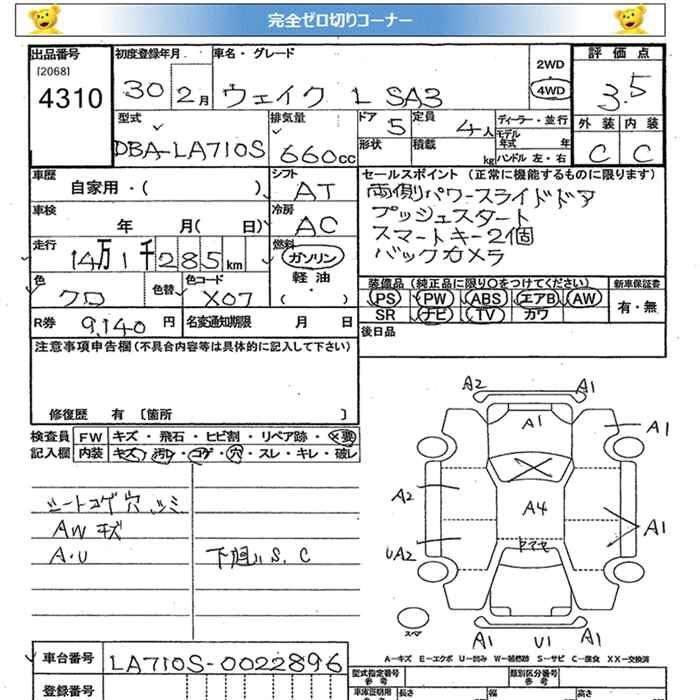 完全ゼロ切りコーナー
出品番号 初度登録年月 車名・グレード 評価点
[2068] 2WD
4310 30 2月 ウェイク L SA3 4WD 3.5
型式 排気量 ドア 5 定員 4人 ディーラー・並行 外装 内装
モデル年式 年
DBA-LA710S 660cc 形状 積載 kg ハンドル 左・右 C C
車歴 自家用・( ) シフト AT セールスポイント (正常に機能するものに限ります)
両側パワースライドドア
車検 年 月( 日) 冷房 AC プッシュスタート
スマートキー2個
走行 14万1千285km 燃料 ガソリン バックカメラ
軽油
・( )
色 クロ 色替 色コード X07
装備品 (純正品に限り○をつけてください) 新車保証書
PS PW ABS エアB AW 有・無
SR ナビ TV カワ
R券 9,140円 名変通知期限 月 日 後日品
注意事項申告欄 (不具合内容等は具体的に記入して下さい)
修復歴 有 [箇所 ]
検査員 FW キズ・飛石・ヒビ割・リペア跡・×要
記入欄 内装 キズ・汚レ・コゲ・穴・スレ・キレ・破レ
シートコゲ穴、シミ
AWキズ
A・U 下廻りS、C
A2 A1
A1 A1
A2 A4 A1
UA2 ヤマセ
スペア A1 U1 A1
A-キズ E-エクボ U-凹み W-補修跡 S-サビ C-腐食 XX-交換済
車台番号 LA710S-0022896
型式指定番号 参考 類別区分番号 参考
登録番号 車庫証明用 参考 長さ 幅 高さ